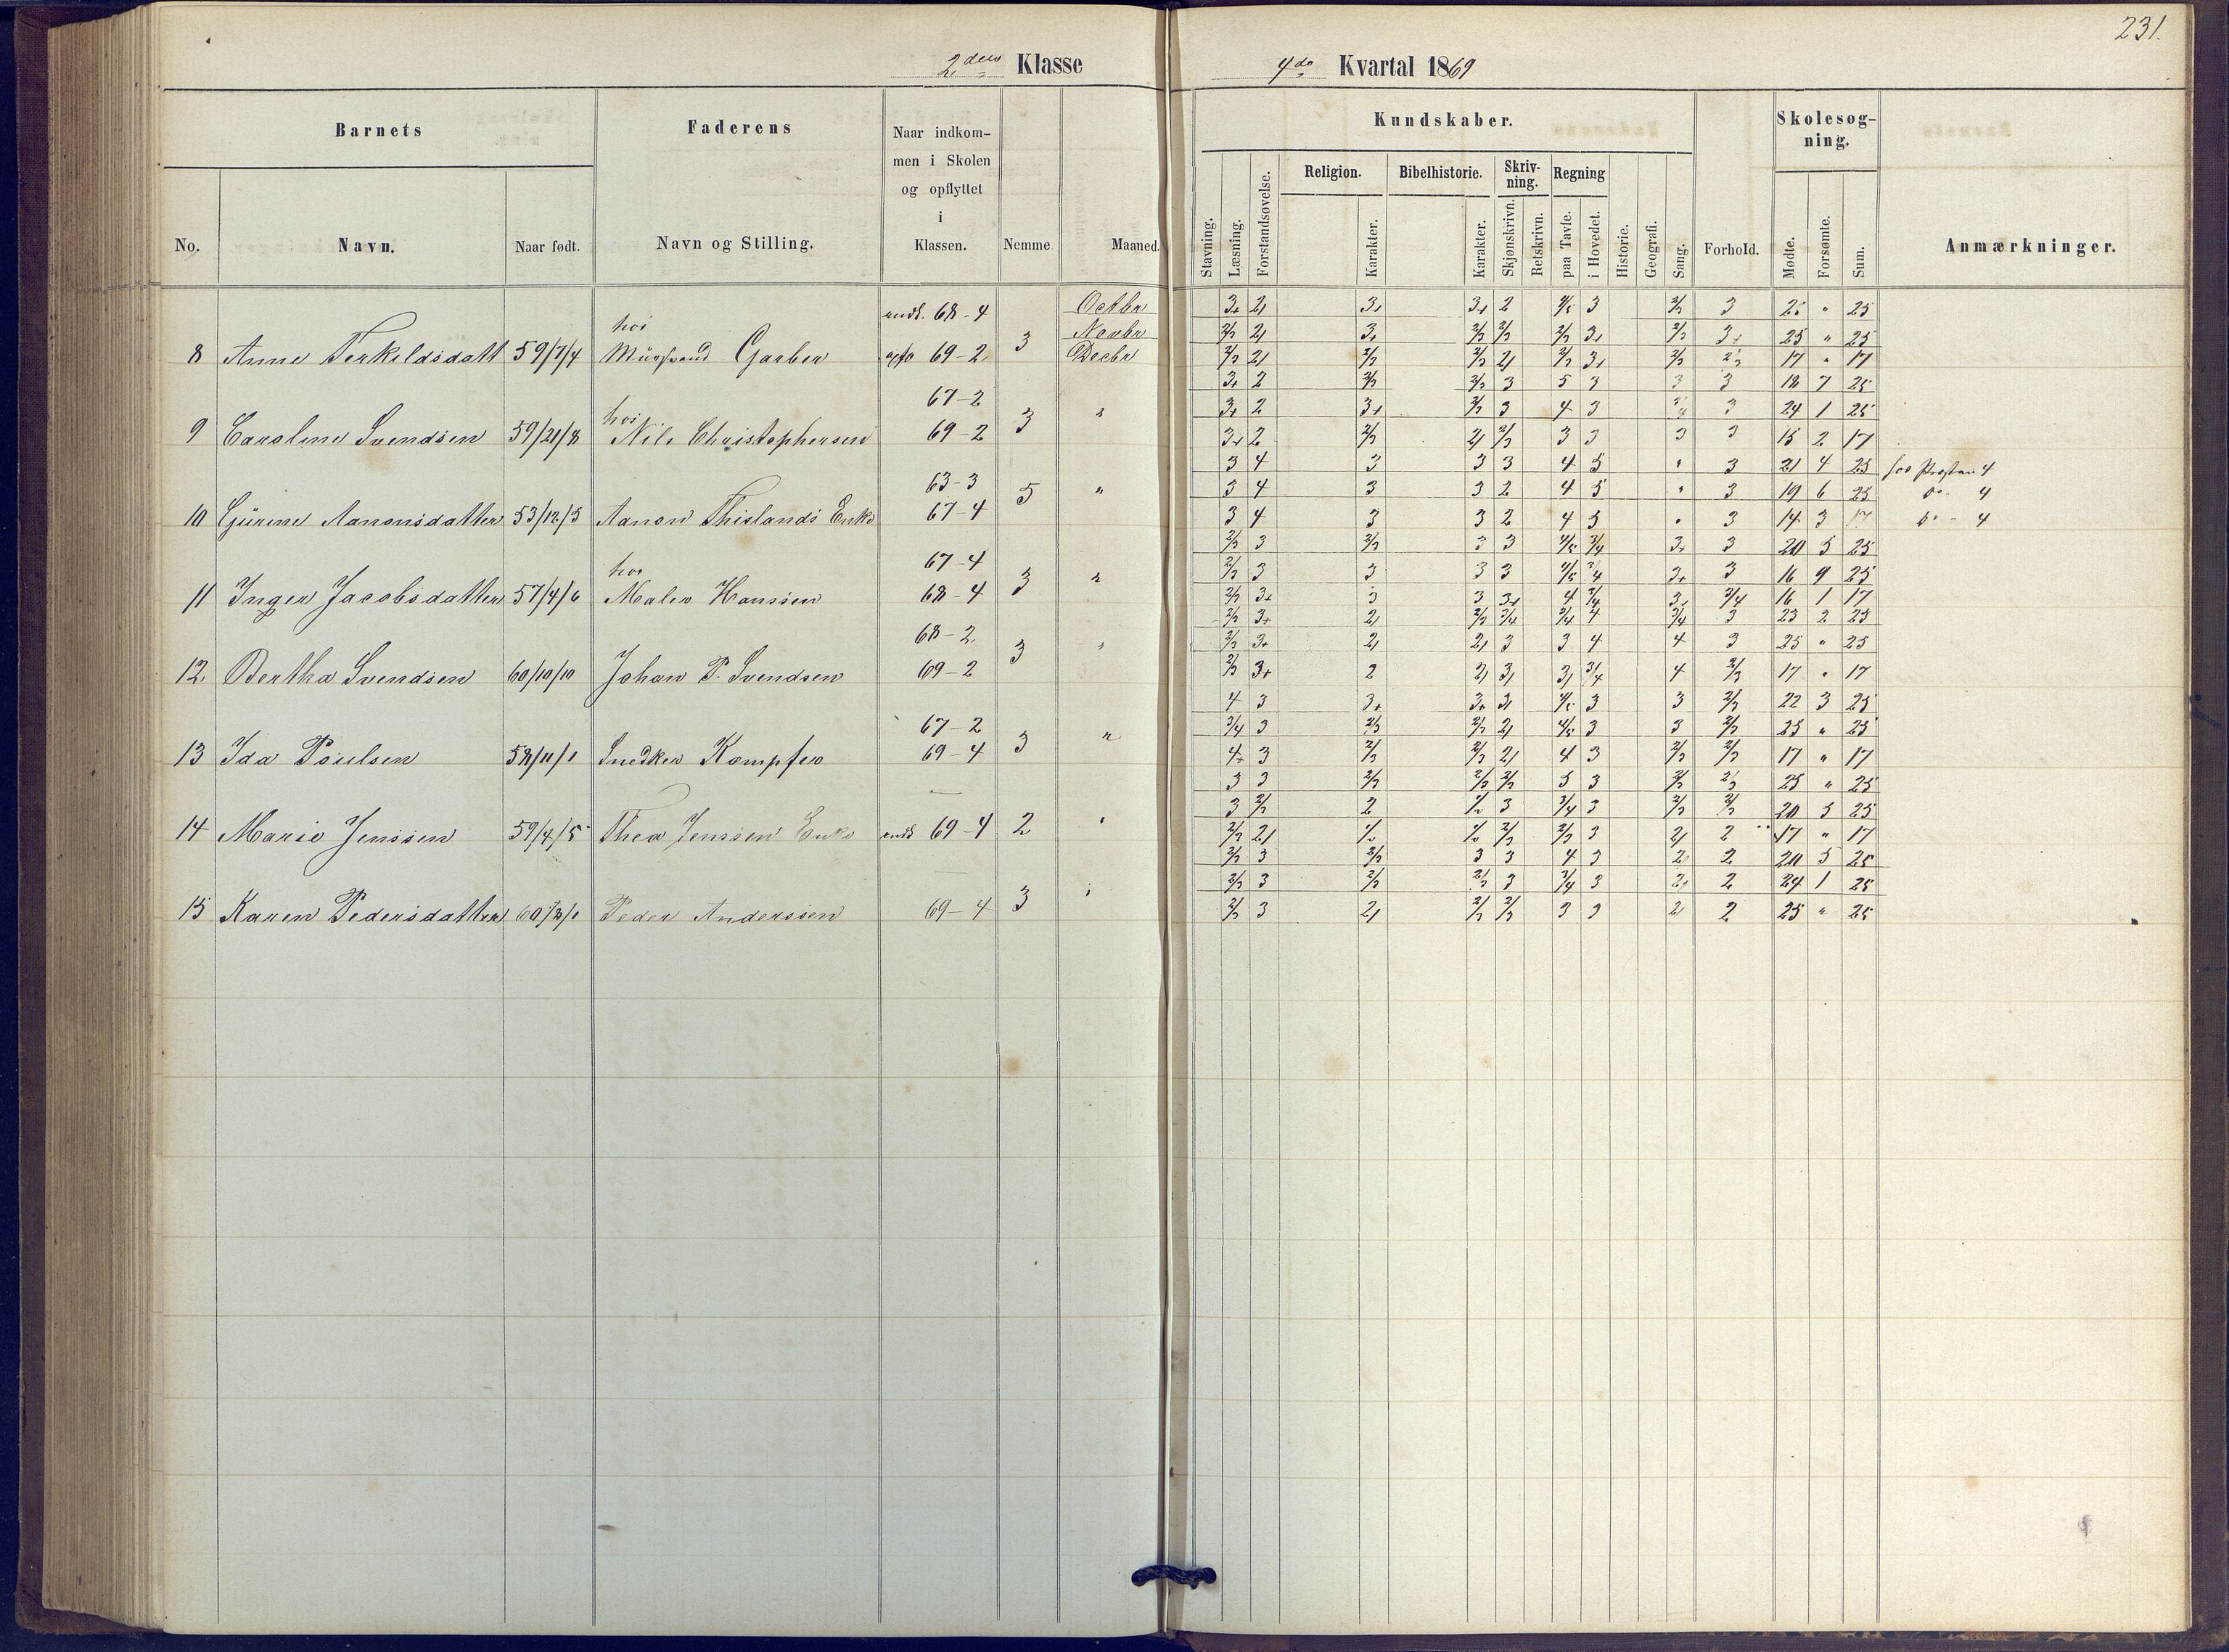 231.
2den Klasse
4de Kvartal 1869
Barnets
Faderens
Naar indkom-
men i Skolen
og opflyttet
i
Klassen.
Nemme
Maaned.
No.
Navn.
Naar født.
Navn og Stilling.
Kundskaber.
Skolesøg-
ning.
Religion.
Bibelhistorie.
Skriv-
ning.
Regning
Stavning.
Læsning.
Forstandsøvelse.
Karakter.
Karakter.
Skjønskrivn.
Retskrivn.
paa Tavle.
i Hovedet.
Historie.
Geografi.
Sang.
Forhold.
Mødte.
Forsømte.
Sum.
Anmærkninger.
hos
indk. 68-4
Octbr
Novbr
8 Anne Terkildsdatt 59/7/4 Garber 69-2 3 Decbr
67-2
hos
9 Caroline Svendsen 59/21/8 Nils Christophersen 69-2 3 "
63-3
10 Gürine Aanonsdatter 53/12/5 Aanon Thislands Enke 67-4 5 "
hos
67-4
11 Inger Jacobsdatter 57/4/6 Maler Hanssen 68-4 3 "
68-2
12. Bertha Svendsen 60/10/10 Johan P. Svendsen 69-2 3 "
67-2
13 Ida Poulsen 58/11/1 Snedker Kæmpfer 69-4 3 "
14 Marie Jenssen 59/4/5 Thea Jenssen Enke indk 69-4 2 "
15 Karen Pedersdatter 60/3/1 Peder Anderssen 69-4 3 "
3+ 2/ 3+ 3+ 2 4/5 3 2/3 3 " 25
2/3 2/ 3+ 2/3 2/3 2/3 3+ 2/3 3+ 25 " 25
2/3 2/ 2/3 2/3 2/ 2/3 3+ 2/3 2/3 17 " 17
3+ 2 2/3 2/3 3 5 3 3 3 18 7 25
3+ 2 3+ 2/3 3 4 3 3/4 3 24 1 25
3+ 2 2/3 2/ 2/3 3 3 3 3 15 2 17
3 4 3 3 3 4 5 " 3 21 4 25 hos Præsten 4
3 4 3 3 2 4 5 " 3 19 6 25 do - 4
3 4 3 3 2 4 5 " 3 14 3 17 do - 4
2/3 3 2/3 3 3 4/5 3/4 3+ 3 20 5 25
2/3 3 3 3 3 4/5 3/4 3+ 3 16 9 25
2/3 3+ 3 3 3+ 4 3/4 3+ 3/4 16 1 17
2/3 3+ 2/ 2/3 3/4 3/4 4 3/4 3 23 2 25
2/3 3+ 2/ 2/ 3 3 4 4 3 25 " 25
2/3 3+ 2 2/ 3/ 3/ 3/4 4 2/3 17 " 17
4 3 3+ 3+ 3/ 4/5 3 3 2/3 22 3 25
3/4 3 2/3 2/3 2/ 4/5 3 3 2/3 25 " 25
4 3 2/3 2/3 2/ 4 3 2/3 2/3 17 " 17
3 3 2/3 2/3 2/3 5 3 2/3 2/3 25 " 25
3 2/3 2 1/2 3 3/4 3 2/3 2/3 20 5 25
2/3 2/ 1/2 1/2 2/3 2/3 3 2/ 2 17 " 17
2/3 3 2/3 3 3 4 3 2/ 2 20 5 25
2/3 3 2/3 2/3 3 3/4 3 2/ 2 24 1 25
2/3 3 2/ 2/3 2/3 3 3 2/ 2 25 " 25